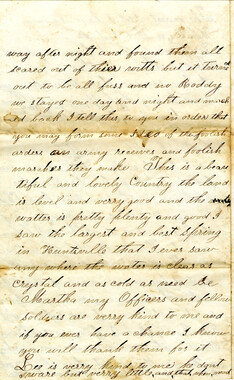 way after night and found them all
scared out of their witts but it turned
out to be all fuss and no Roddy
we stayed one day and night and march
ed back I tell this to you in order that
you may form some Idea of the foolish
orders an army receives and foolish
marches they make This is a beau
tiful and lovely Country the land
is level and verry good and the
watter is pretty plenty and good I
saw the largest and best Spring
in Huntsville that I ever saw
any where the water is clear as
Crystal and as cold as need be
Martha my Officers and fellow
soldiers are verry kind to me and
if you ever have a chance I know
you will thank them for it
is verry kind to me he dont
swear but verry little and